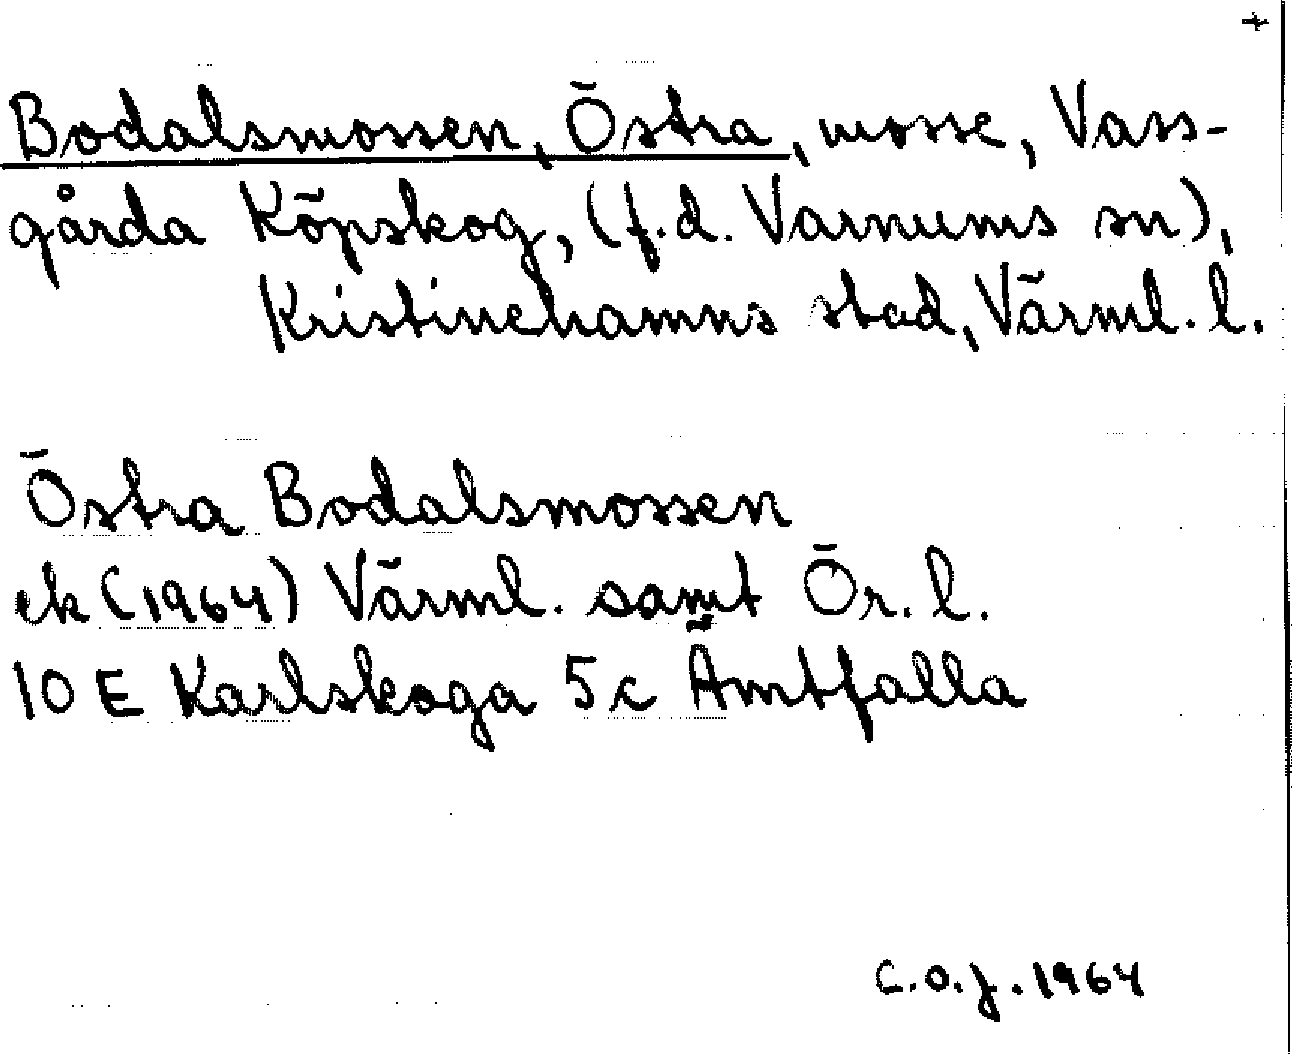 +
Bodalsmossen, Östra, mosse, Vass-
gårda Köpskog, (f.d. Varnums sn),
Kristinehamns stad, Värml. l.
Östra Bodalsmossen
ek (1964) Värml. samt Ör. l.
10 E Karlskoga 5 c Ämtfalla
C.O.J. 1964